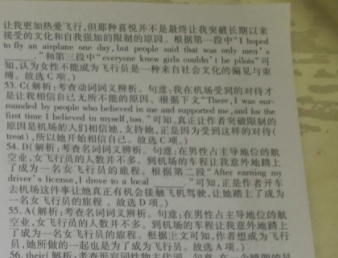 让我更加热爱飞行,但那种喜悦并不是最终让我突破长期以来
接受的文化和自我强加的限制的原因。根据第一段中"I hoped
to fly an airplane one day, but people said that was only men's
."和第三段中"everyone knew girls couldn't be pilots"可
知,认为女性不能成为飞行员是一种来自社会文化的偏见与束
缚。故选C项。)
53. C(解析:考查动词词义辨析。句意:我在机场受到的对待才
是让我相信自己无所不能的原因。根据下文"There, I was sur-
rounded by people who believed in me and supported me, and for the
first time I believed in myself, too."可知,真正让作者突破限制的
原因是机场的人们相信她、支持她,正是因为受到这样的对待(
treat),所以她开始相信自己。故选C项。)
54. D(解析:考查名词词义辨析。句意:在男性占主导地位的航
空业,女飞行员的人数并不多。到机场的车程让我意外地踏上
了成为一名女飞行员的旅程。根据第二段"After earning my
driver's license, I drove to a local
"可知,正是作者开车
去机场这件事让她真正有机会接触飞机驾驶,让她踏上了成为
一名女飞行员的旅程。故选D项。)
55. A(解析:考查名词词义辨析。句意:在男性占主导地位的航
空业,女飞行员的人数并不多。到机场的车程让我意外地踏上
了成为一名女飞行员的旅程。根据上文可知,作者想成为飞行
员,她所做的一起也是为了成为飞行员。故选A项。)